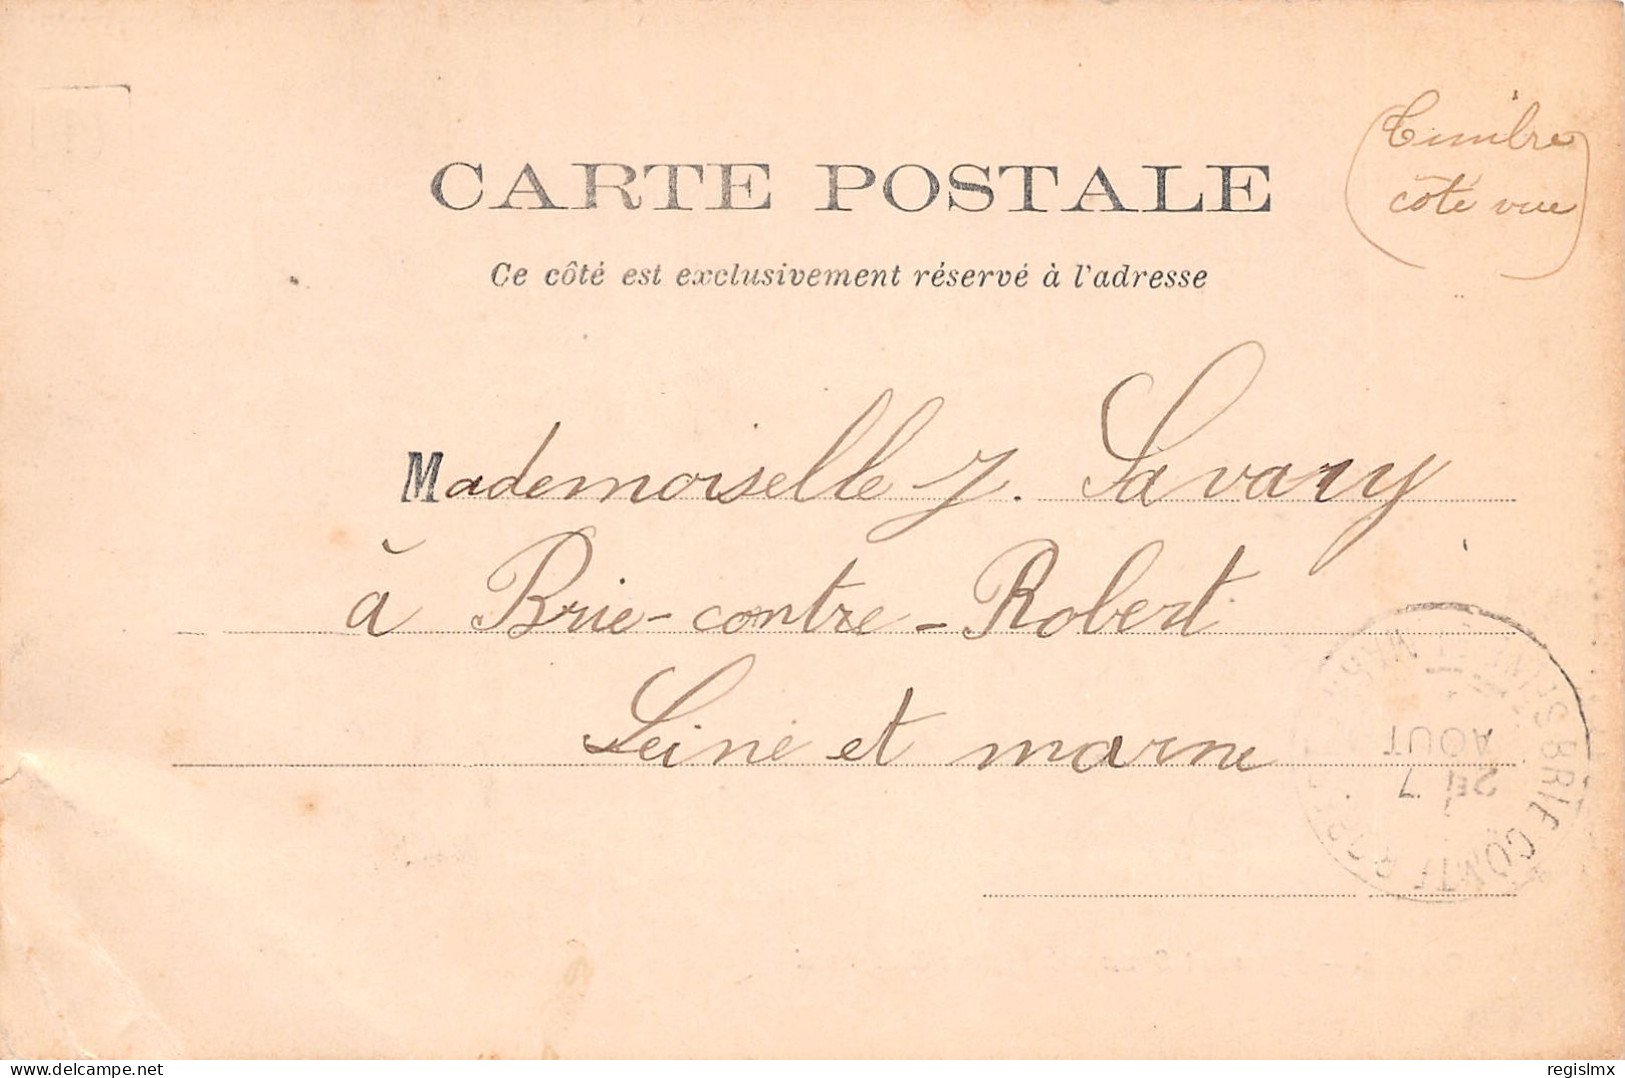 CARTE POSTALE
(Timbre
côté vue)
Ce côté est exclusivement réservé à l'adresse
Mademoiselle J. Savary
à Brie-contre-Robert
Seine et marne
BRIE COMTE
2E 7
AOUT
delcampe.net
regislmx